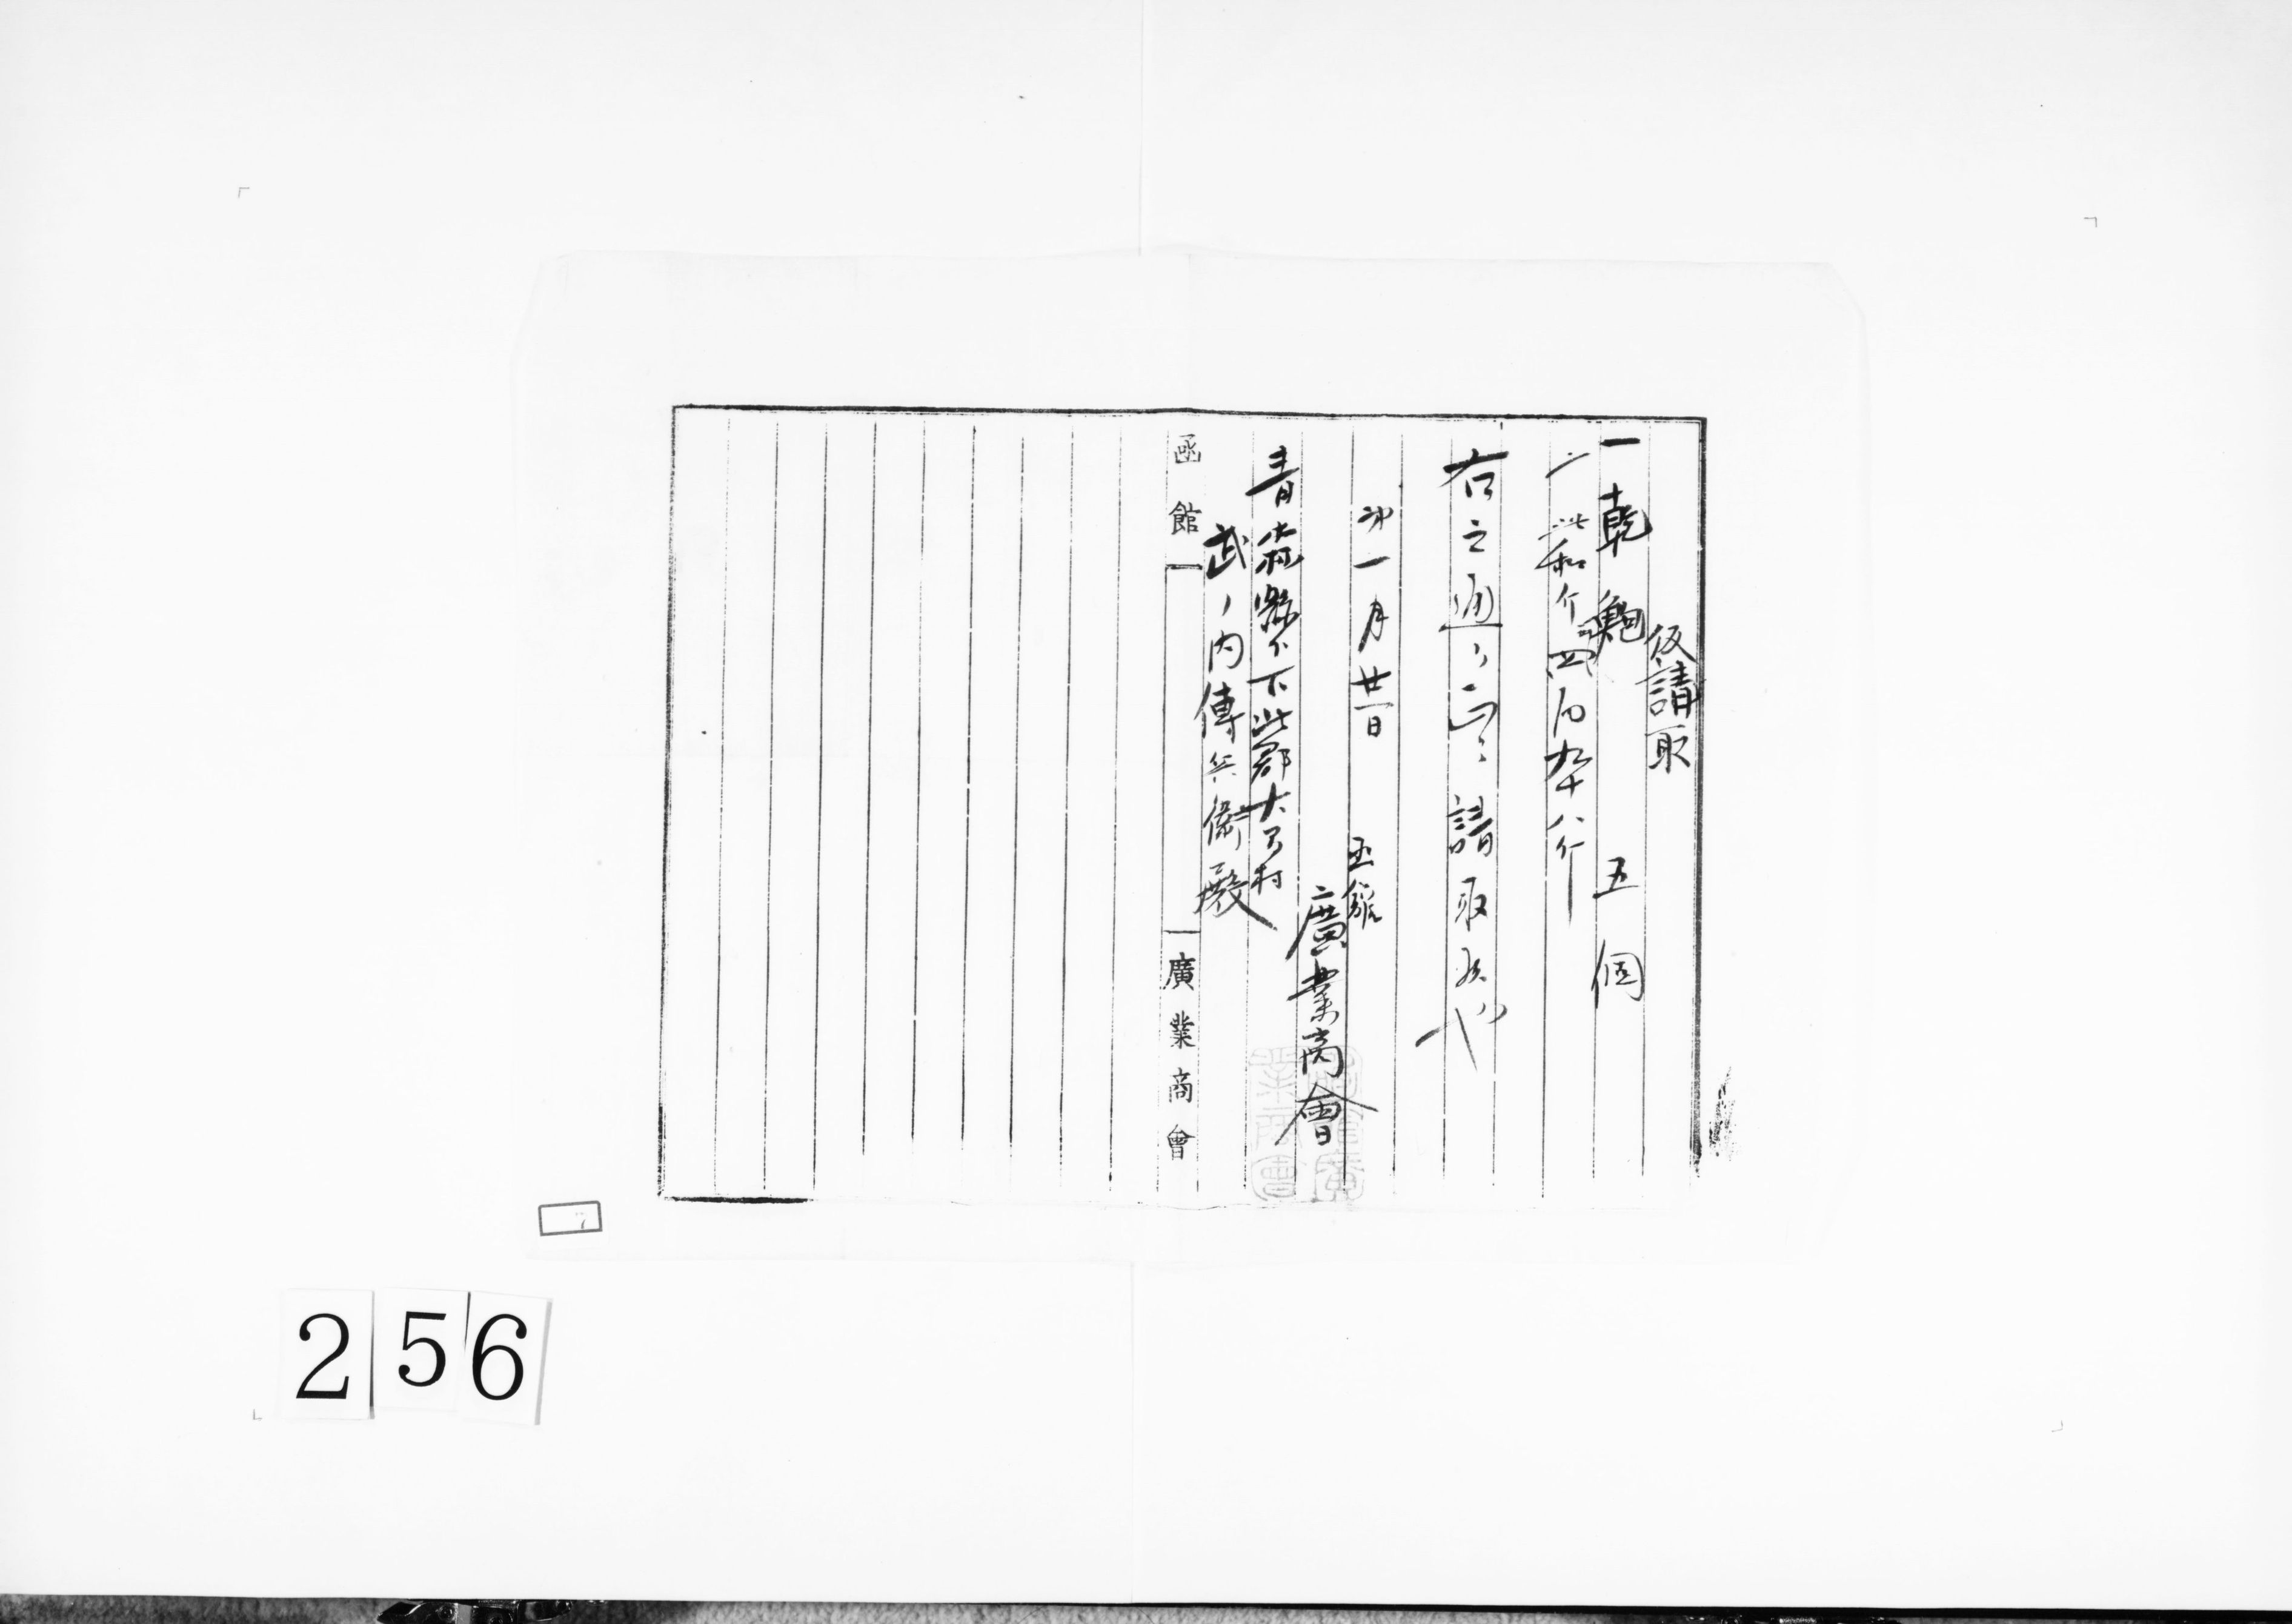 仮請取
一乾鮑 五個
此和斤四百九十八斤
右之通リ正ニ請取候也
第一月廿一日 函館
廣業商會
青森縣下下北郡大間村
武ノ内傳兵衛殿
函館
廣業商會
7
256